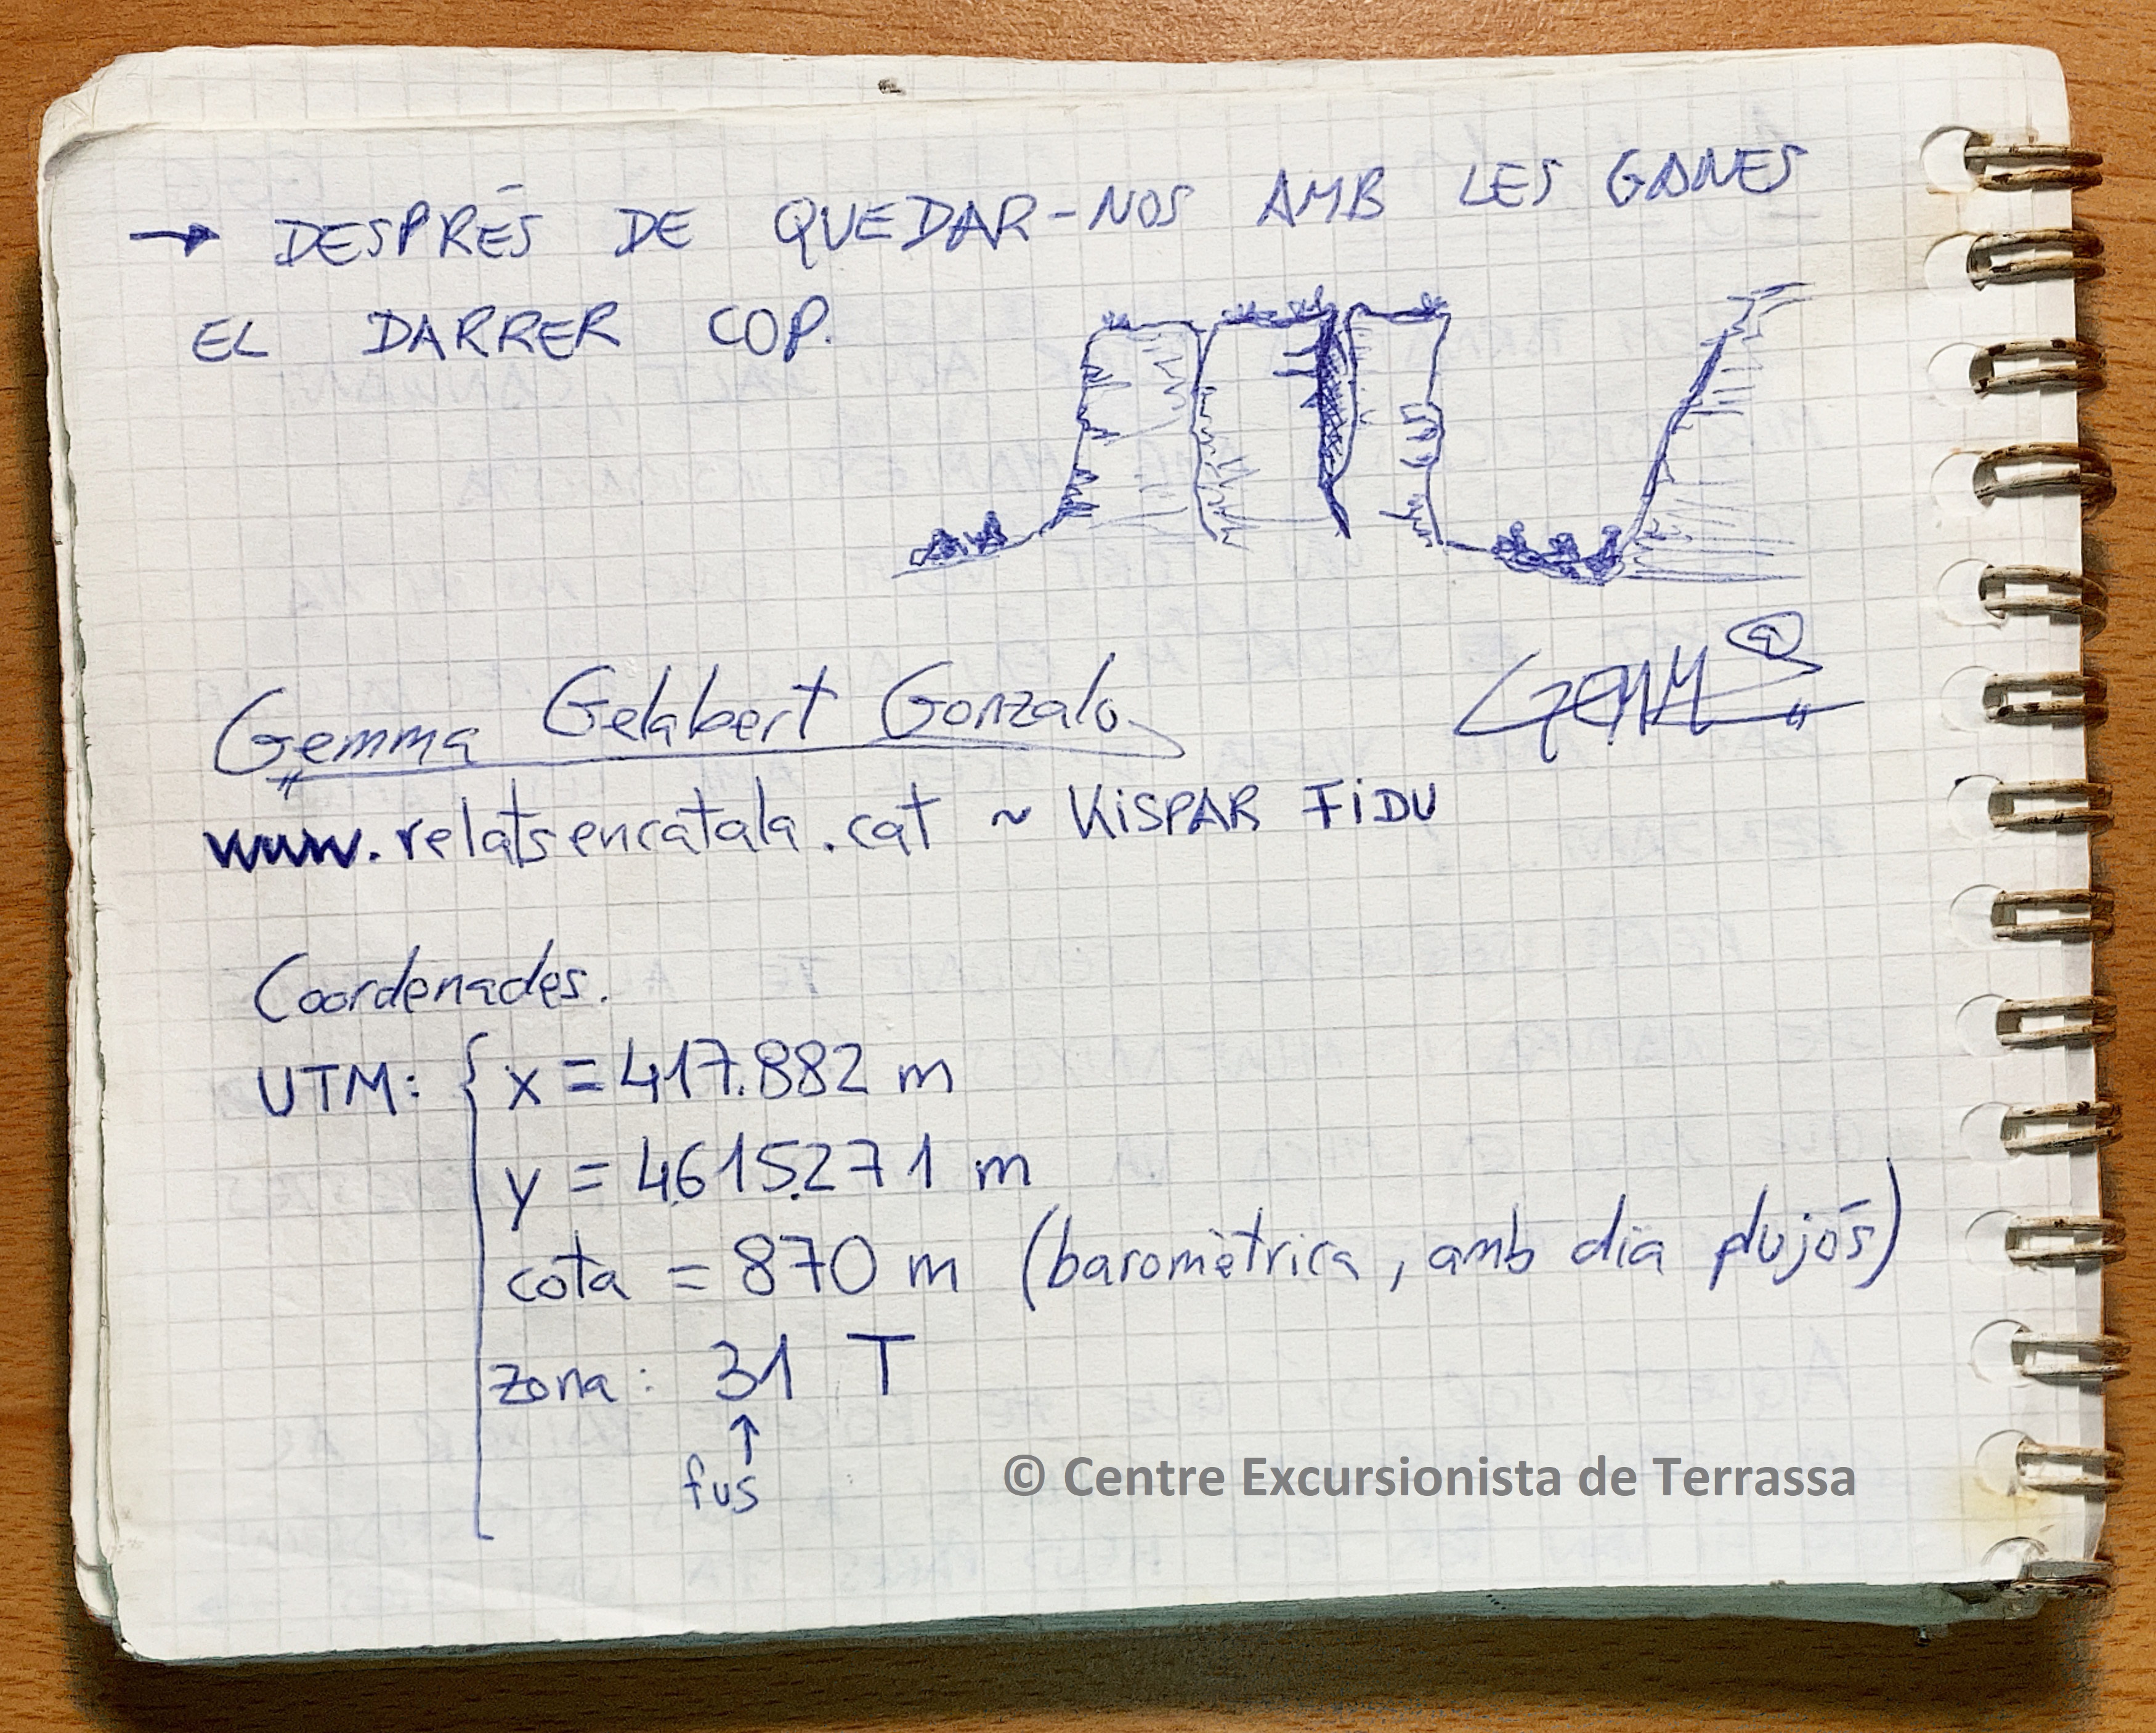 → DESPRÉS DE QUEDAR-NOS AMB LES GANES
EL DARRER COP.
Gemma Gelabert Gonzalo
Gemma
www.relatsencatala.cat ~ KISPAR FIDU
Coordenades.
UTM: { x = 417.882 m
y = 4.615.271 m
cota = 870 m (baromètrica, amb dia plujós)
zona: 31 T
↑
fus
© Centre Excursionista de Terrassa